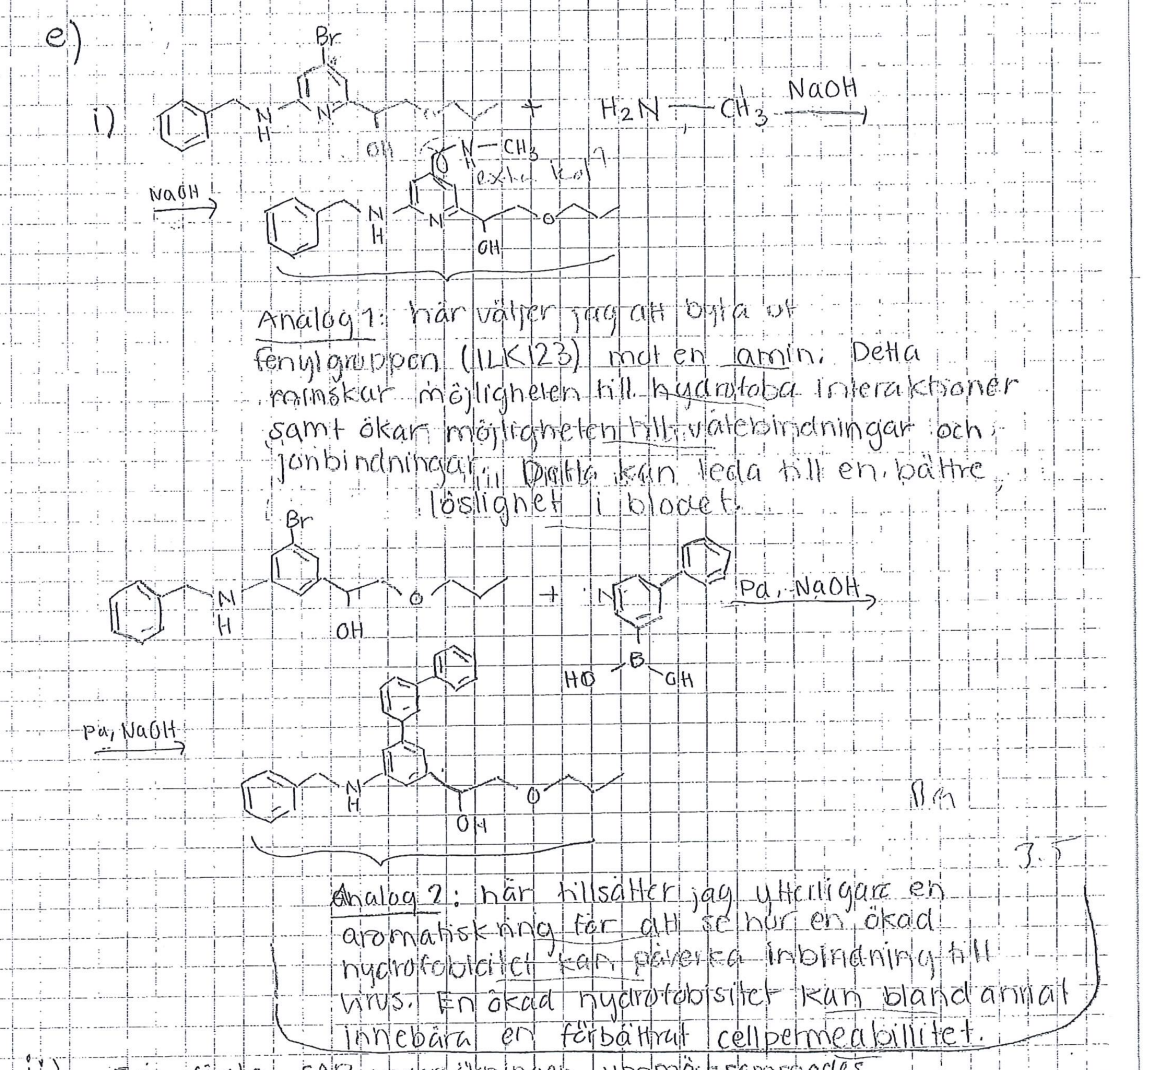 e)
Br
i)
N
H
N
OH
+
H₂N — CH₃
NaOH
N — CH₃
H
extra kol?
NaOH
N
H
N
O
OH
Analog 1: här väljer jag att byta ut
fenylgruppen (ILK123) mot en amin. Detta
minskar möjligheten till hydrofoba interaktioner
samt ökar möjligheten till vätebindningar och
jonbindningar. Detta kan leda till en bättre
löslighet i blodet.
Br
N
H
OH
O
+
N
B
HO
OH
Pd, NaOH
Pd, NaOH
N
H
OH
O
3.5
Analog 2: här tillsätter jag ytterligare en
aromatisk ring för att se hur en ökad
hydrofobicitet kan påverka inbindning till
virus. En ökad hydrofobisitet kan bland annat
innebära en förbättrat cellpermeabillitet.